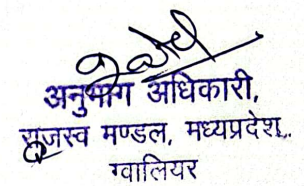 अनुभाग अधिकारी,
राजस्व मण्डल, मध्यप्रदेश,
ग्वालियर